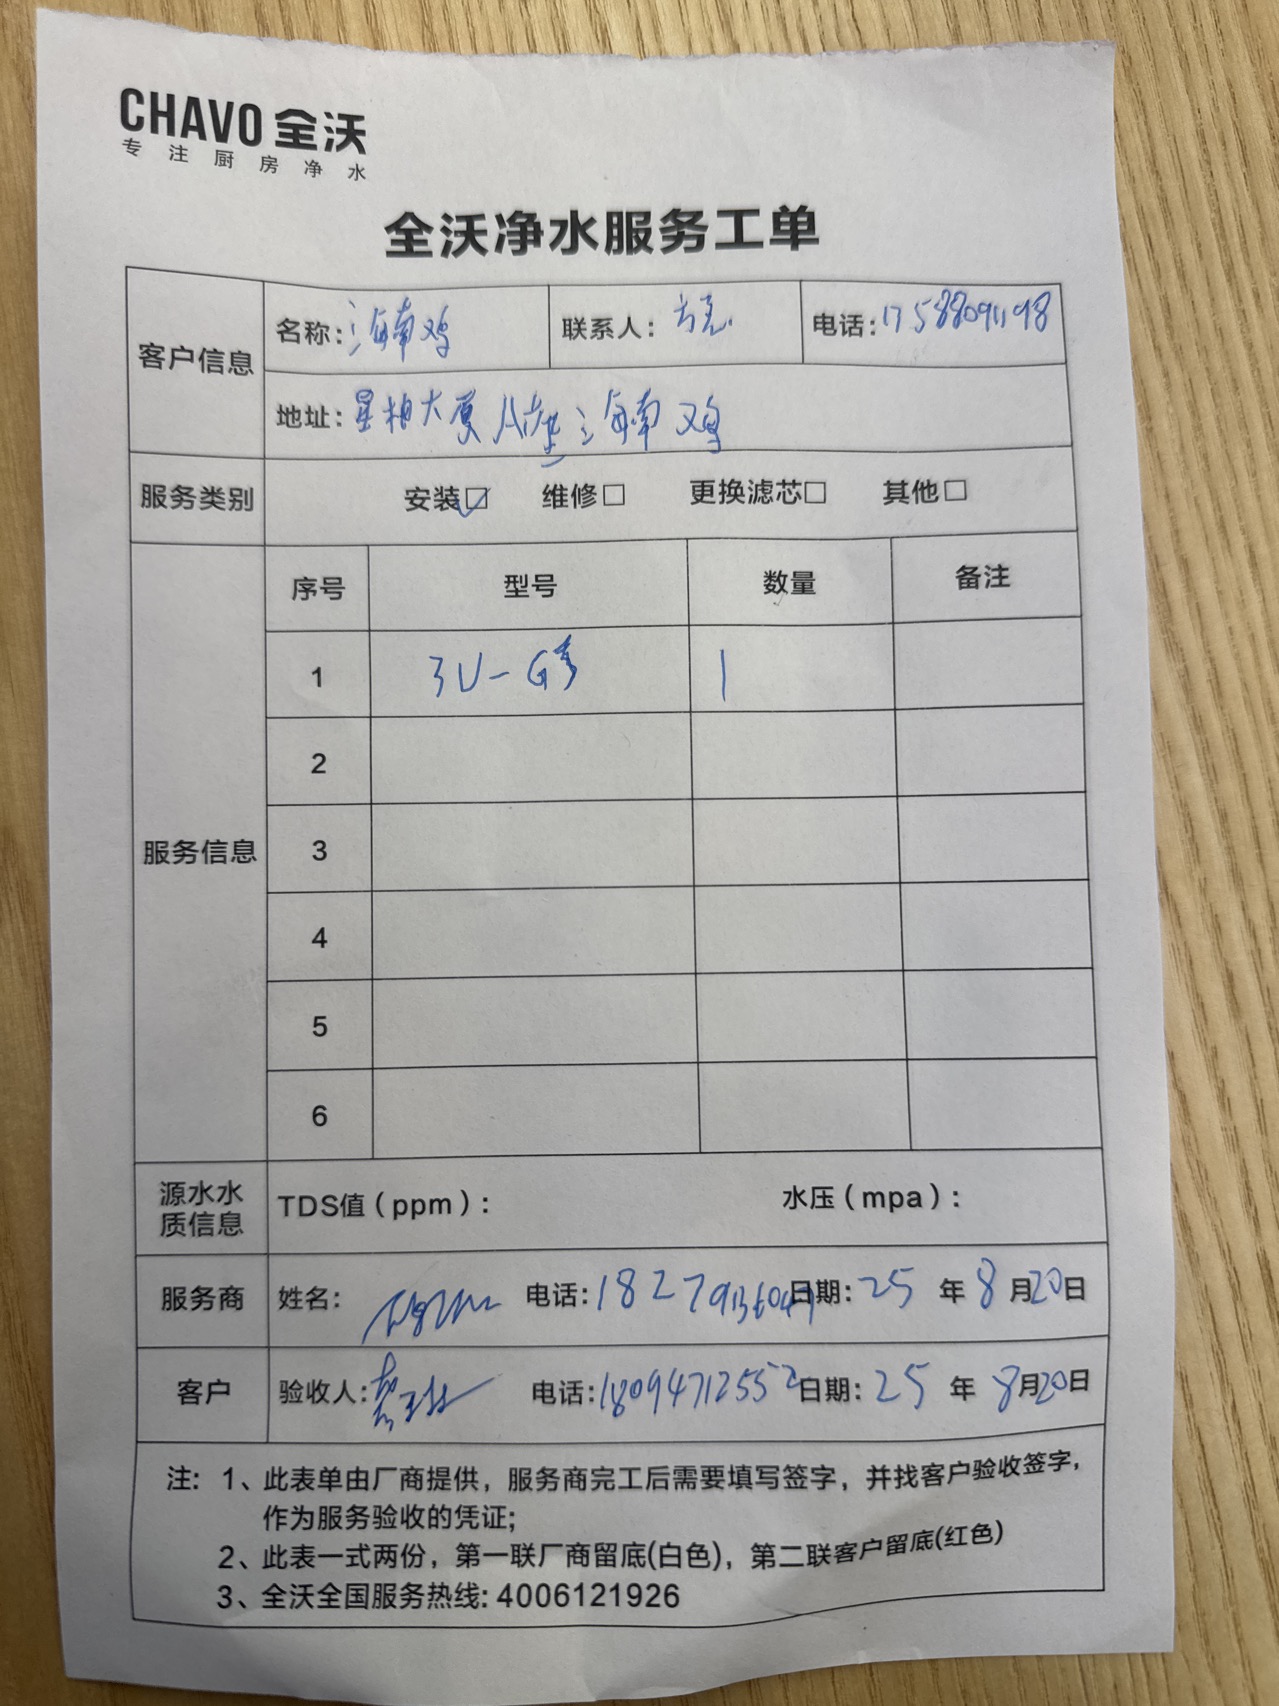 CHAVO 全沃
专注厨房净水
全沃净水服务工单
客户信息
名称：海南鸡 联系人： 电话：17588091198
地址：星柏大厦A座海南鸡
服务类别 安装☑ 维修□ 更换滤芯□ 其他□
服务信息
序号 型号 数量 备注
1 3U-G 1
2
3
4
5
6
源水水质信息 TDS值（ppm）： 水压（mpa）：
服务商 姓名： 电话：18279136047 日期：25年8月20日
客户 验收人： 电话：18094712552 日期：25年8月20日
注：1、此表单由厂商提供，服务商完工后需要填写签字，并找客户验收签字，
作为服务验收的凭证；
2、此表一式两份，第一联厂商留底(白色)，第二联客户留底(红色)
3、全沃全国服务热线：4006121926